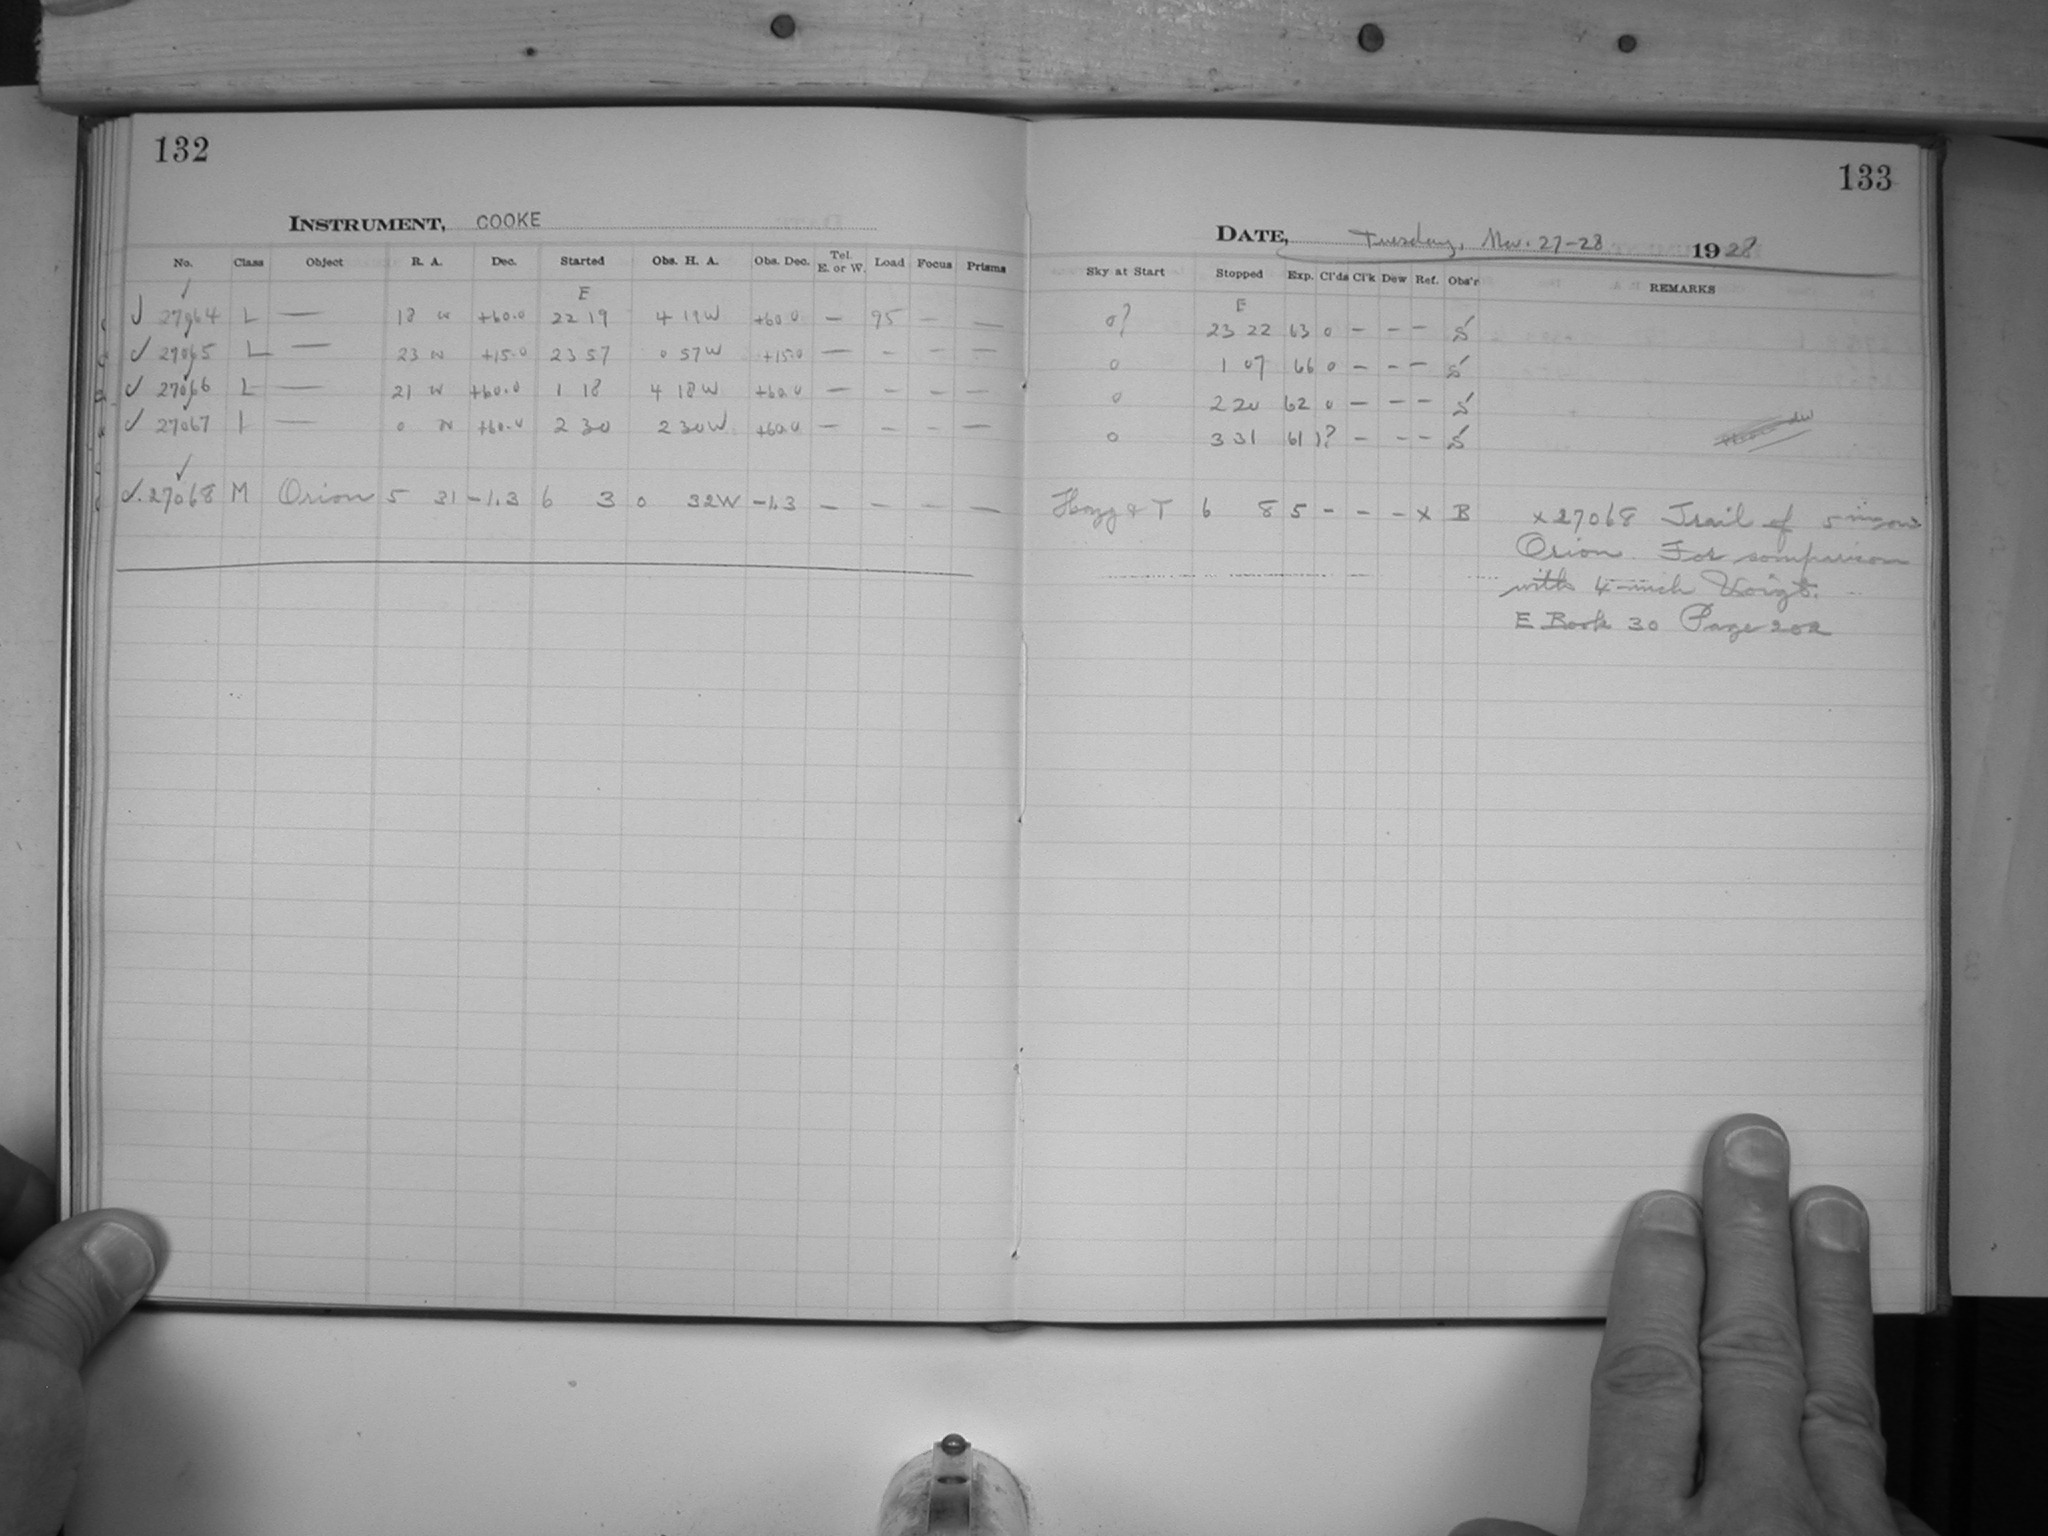 132
133
INSTRUMENT, COOKE
DATE, Tuesday, Nov. 27-28 1928
No. Class Object R. A. Dec. Started Obs. H. A. Obs. Dec. Tel. E. or W. Load Focus Prisms
Sky at Start Stopped Exp. Cl'ds Cl'k Dew Ref. Obs'r REMARKS
E E
√ 27064 L — 18 N +60.0 22 19 4 19W +60.0 — 95 — — 0? 23 22 63 0 — — — S
√ 27065 L — 23 N +15.0 23 57 0 57W +15.0 — — — — 0 1 07 66 0 — — — S
√ 27066 L — 21 N +60.0 1 18 4 18W +60.0 — — — — 0 2 20 62 0 — — — S
√ 27067 — 0 N +60.0 2 30 2 30W +60.0 — — — — 0 3 31 61 1? — — — S
√ 27068 M Orion 5 31 -1.3 6 3 0 32W -1.3 — — — — & T 6 8 5 - - - x B x 27068 Trail of 5 on
Orion. For comparison
with 4-inch Voigt.
E Book 30 Page 202